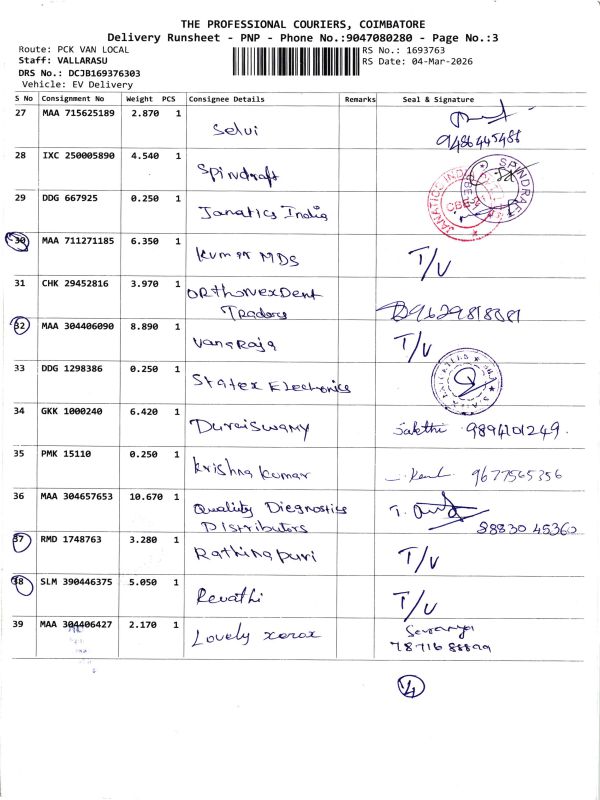 THE PROFESSIONAL COURIERS, COIMBATORE
Delivery Runsheet - PNP - Phone No.:9047080280 - Page No.:3
Route: PCK VAN LOCAL
RS No.: 1693763
Staff: VALLARASU
RS Date: 04-Mar-2026
DRS No.: DCJB169376303
Vehicle: EV Delivery
S No Consignment No Weight PCS Consignee Details Remarks Seal & Signature
27 MAA 715625189 2.870 1 Selvi
9486445486
28 IXC 250005890 4.540 1 Spindraft SPINDRAFT
29 DDG 667925 0.250 1 Janatics India JANATICS INDIA CBE
30 MAA 711271185 6.350 1 Kumar MDS T/V
31 CHK 29452816 3.970 1 Orthonexdent
Tradors 9629818881
32 MAA 304406090 8.890 1 Vanaraja T/V
33 DDG 1298386 0.250 1 Statex Electronics
34 GKK 1000240 6.420 1 Duraiswamy Sakthi 9894101249.
35 PMK 15110 0.250 1 Krishna Kumar 9677565356
36 MAA 304657653 10.670 1 Quality Diegnostics
Distributors 88830 45360
37 RMD 1748763 3.280 1 Rathinapuri T/V
38 SLM 390446375 5.050 1 Revathi T/V
39 MAA 304406427 2.170 1 Lovely xerox